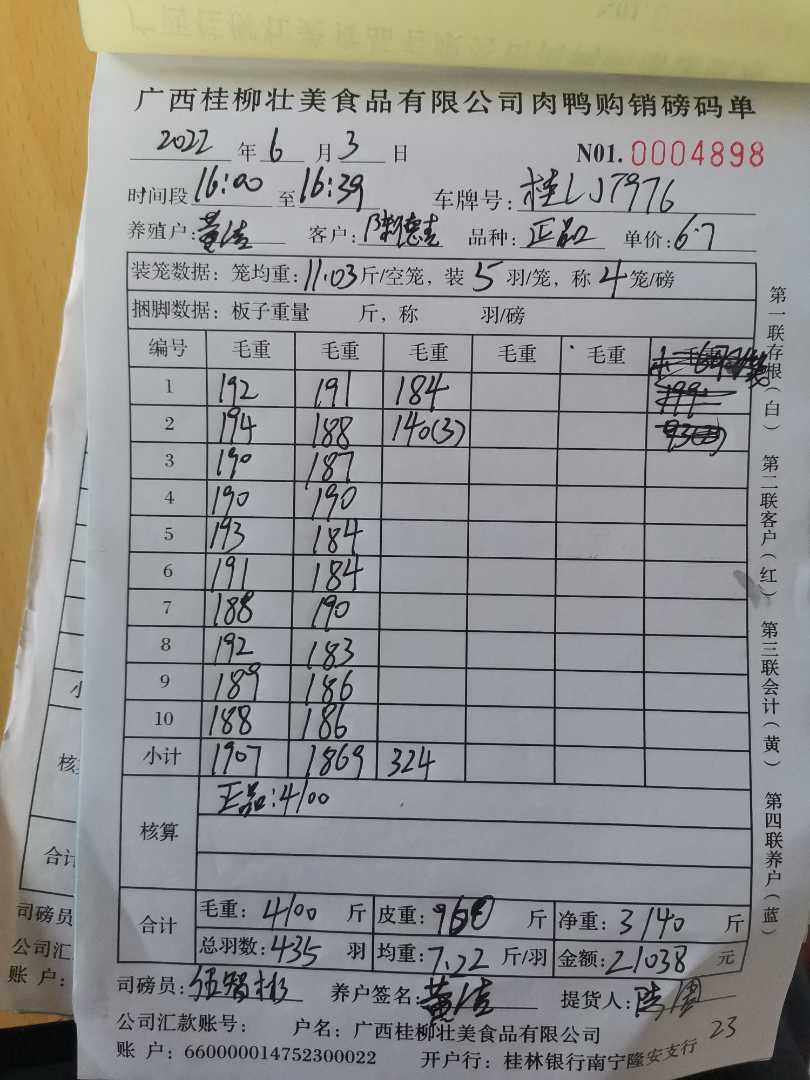 广西桂柳壮美食品有限公司肉鸭购销磅码单
2022 年 6 月 3 日 N01. 0004898
时间段 16:00 至 16:39 车牌号: 桂LJ7976
养殖户: 黄信 客户: 陈德志 品种: 正品 单价: 6.7
装笼数据: 笼均重: 11.03 斤/空笼, 装 5 羽/笼, 称 4 笼/磅
捆脚数据: 板子重量 斤, 称 羽/磅
编号 毛重 毛重 毛重 毛重 毛重 毛重
1 192 191 184
2 194 188 140(3)
3 190 187
4 190 190
5 193 184
6 191 184
7 188 190
8 192 183
9 189 186
10 188 186
小计 1907 1869 324
核算 正品:4100
合计 毛重: 4100 斤 皮重: 960 斤 净重: 3140 斤
总羽数: 435 羽 均重: 7.22 斤/羽 金额: 21038 元
司磅员: 伍智彬 养户签名: 黄信 提货人:
公司汇款账号: 户名: 广西桂柳壮美食品有限公司
账 户: 660000014752300022 开户行: 桂林银行南宁隆安支行 23
第一联存根(白) 第二联客户(红) 第三联会计(黄) 第四联养户(蓝)
小
核算
合计
司磅员
公司汇
账 户: